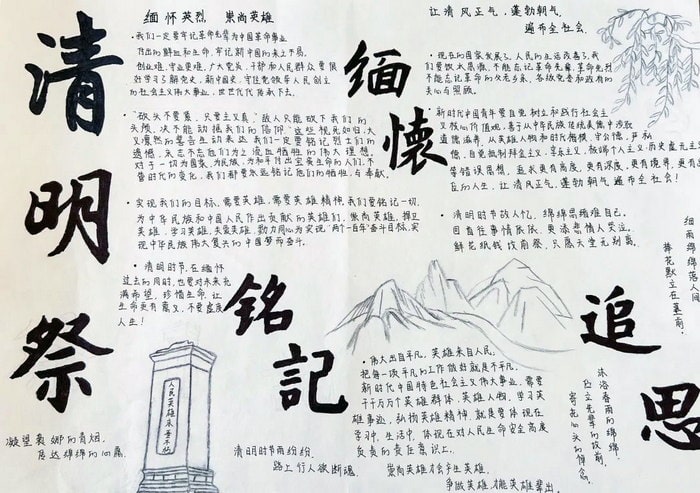 清明祭
缅怀英烈 崇尚英雄
•我们一定要牢记革命先辈为中国革命事业
付出的鲜血和生命,牢记新中国的来之不易。
创业难,守业更难,广大党员、干部和人民群众要很
好学习了解党史、新中国史,守住党领导人民创立
的社会主义伟大事业,世世代代传承下去。
•"砍头不要紧,只要主义真","敌人只能砍下我们的
头颅,决不能动摇我们的信仰"这些视死如归、大
义凛然的誓言生动表达我们一定要铭记烈士们的
遗愿,永志不忘他们为之流血牺牲的伟大理想。
对于一切为国家、为民族、为和平付出宝贵生命的人们,不
管时代怎样变化,我们都要永远铭记他们的牺牲与奉献。
•实现我们的目标,需要英雄,需要英雄精神,我们要铭记一切
为中华民族和中国人民作出贡献的英雄们,崇尚英雄,捍卫
英雄,学习英雄,关爱英雄,勠力同心为实现"两个一百年"奋斗目标,实
现中华民族伟大复兴的中国梦而奋斗。
•清明时节,在缅怀
过去的同时,也要对未来充
满希望,珍惜生命,让
生命更有意义,不要虚度
人生!
人民英雄永垂不朽
凝望袅娜的青烟,
传达绵绵的心愿。
缅懷
铭記
追思
让清风正气、蓬勃朝气
遍布全社会。
•现在的国家发展了,人民的生活改善了,我
们要饮水思源,不能忘记革命先辈,革命先烈
不能忘记革命的父老乡亲,各级党委和政府的
关心与照顾。
•新时代中国青年要自觉树立和践行社会主
义核心价值观,善于从中华民族传统美德中汲取
道德滋养,从英雄人物和时代楷模
自觉抵制拜金主义、享乐主义、极端个人主义、历史虚无主
等错误思想,追求更有高度、更有深度、更有境界、更有
位的人生,让清风正气、蓬勃朝气遍布全社会!
•清明时节故人忆,绵绵思绪难自己。
回首往事情依依,更添悲情人哭泣。
鲜花纸钱坟前祭,只愿天堂无别离。
细雨绵绵落人间
捧花默立在墓前!
•伟大出自平凡,英雄来自人民。
把每一项平凡的工作做好就是不平凡。
新时代中国特色社会主义伟大事业,需要
千千万万个英雄群体、英雄人物。学习英
雄事迹,弘扬英雄精神,就是要体现在
学习中、生活中,体现在对人民生命安全高度
负责的责任意识上。
崇尚英雄才会产生英雄,
争做英雄才能英雄辈出。
清明时节雨纷纷,
路上行人欲断魂。
沐浴春雨的绵绵,
伫立先辈的坟前,
寄托心头的悼念。